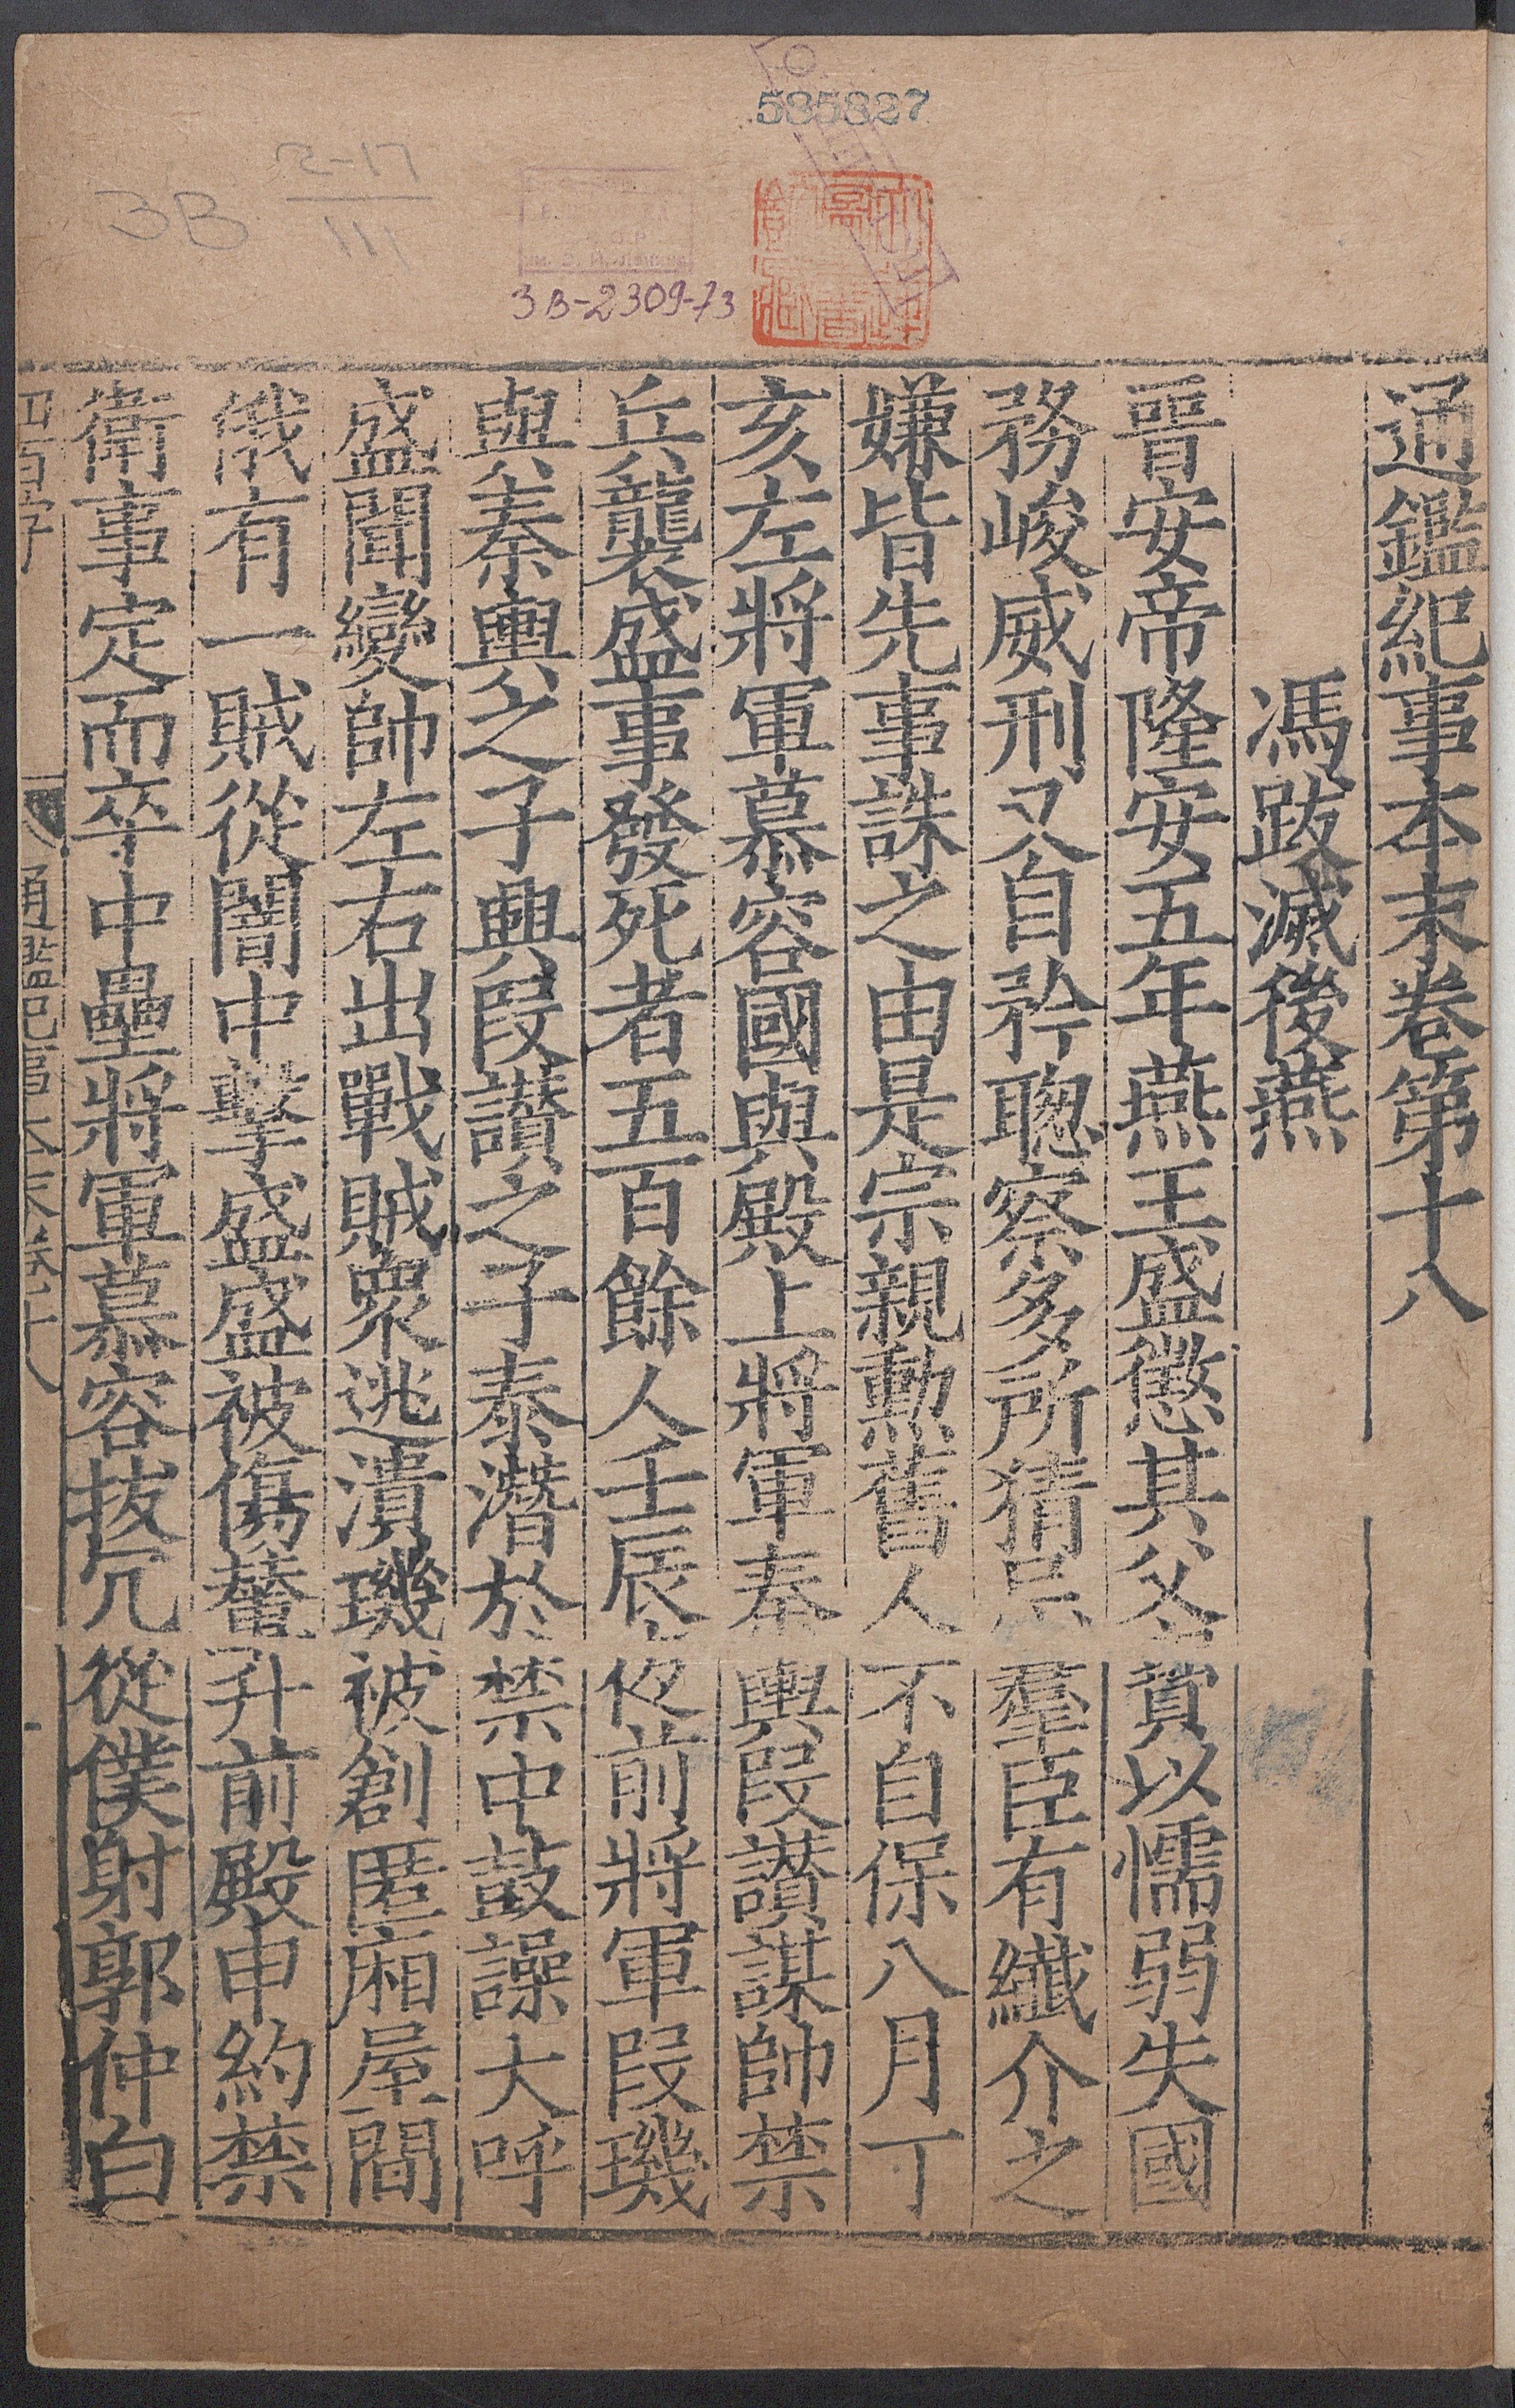 585827
3B 2-17
111
3B-2309-73
通鑑紀事本末卷第十八
馮跋滅後燕
晉安帝隆安五年燕王盛懲其父寶以懦弱失國
務峻威刑又自矜聰察多所猜忌羣臣有纖介之
嫌皆先事誅之由是宗親勳舊人不自保八月丁
亥左將軍慕容國與殿上將軍秦輿段讃謀帥禁
兵襲盛事發死者五百餘人壬辰夜前將軍段璣
與秦輿之子興段讃之子泰潛於禁中鼓譟大呼
盛聞變帥左右出戰賊衆逃潰璣被創匿廂屋間
俄有一賊從闇中擊盛盛被傷輦升前殿申約禁
衛事定而卒中壘將軍慕容拔冗從僕射郭仲白
四百字
通鑑紀事本末卷十八